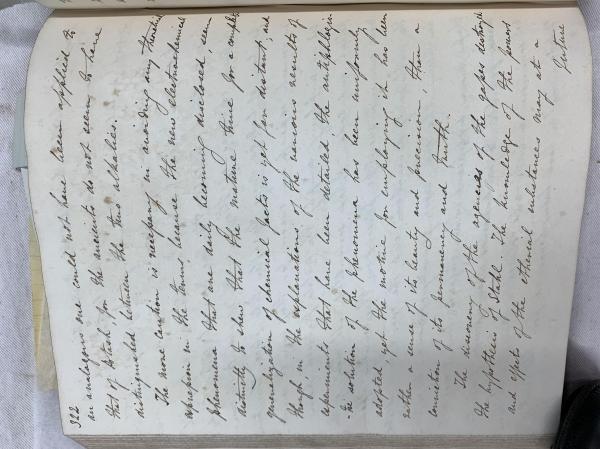 322
an analogous one could not have been applied to
that of Potash, for the ancients do not seem to have
distinguished between the two alkalies.
The more caution is necessary in avoiding any theoretical
expression in the terms because the new electrochemical
phenomena that are daily becoming disclosed, seem
distinctly to show that the mature time for a complete
generalization of chemical facts is yet far distant; and
though in the explanations of the various results of
experiments that have been detailed, the antiphlogis-
-tic solution of the phenomena has been uniformly
adopted yet the motive for employing it has been
rather a sense of its beauty and precision, than a
conviction of its permanency and truth.
The discovery of the agencies of the gases destroyed
the hypothesis of Stahl. The knowledge of the powers
and effects of the etherial substances may at a
future